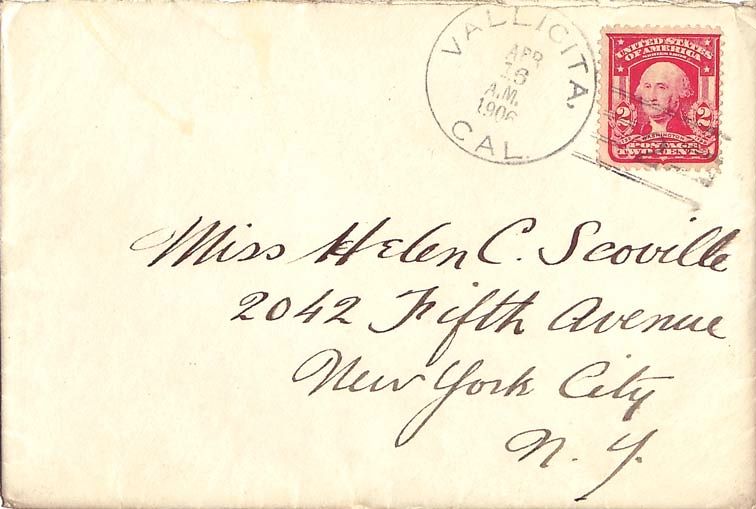 VALLICITA,
APR
A.M.
1906
CAL.
UNITED STATES
OF AMERICA
2 2
WASHINGTON
POSTAGE
TWO CENTS
Miss Helen C. Scoville
2042 Fifth Avenue
New York City
N. Y.